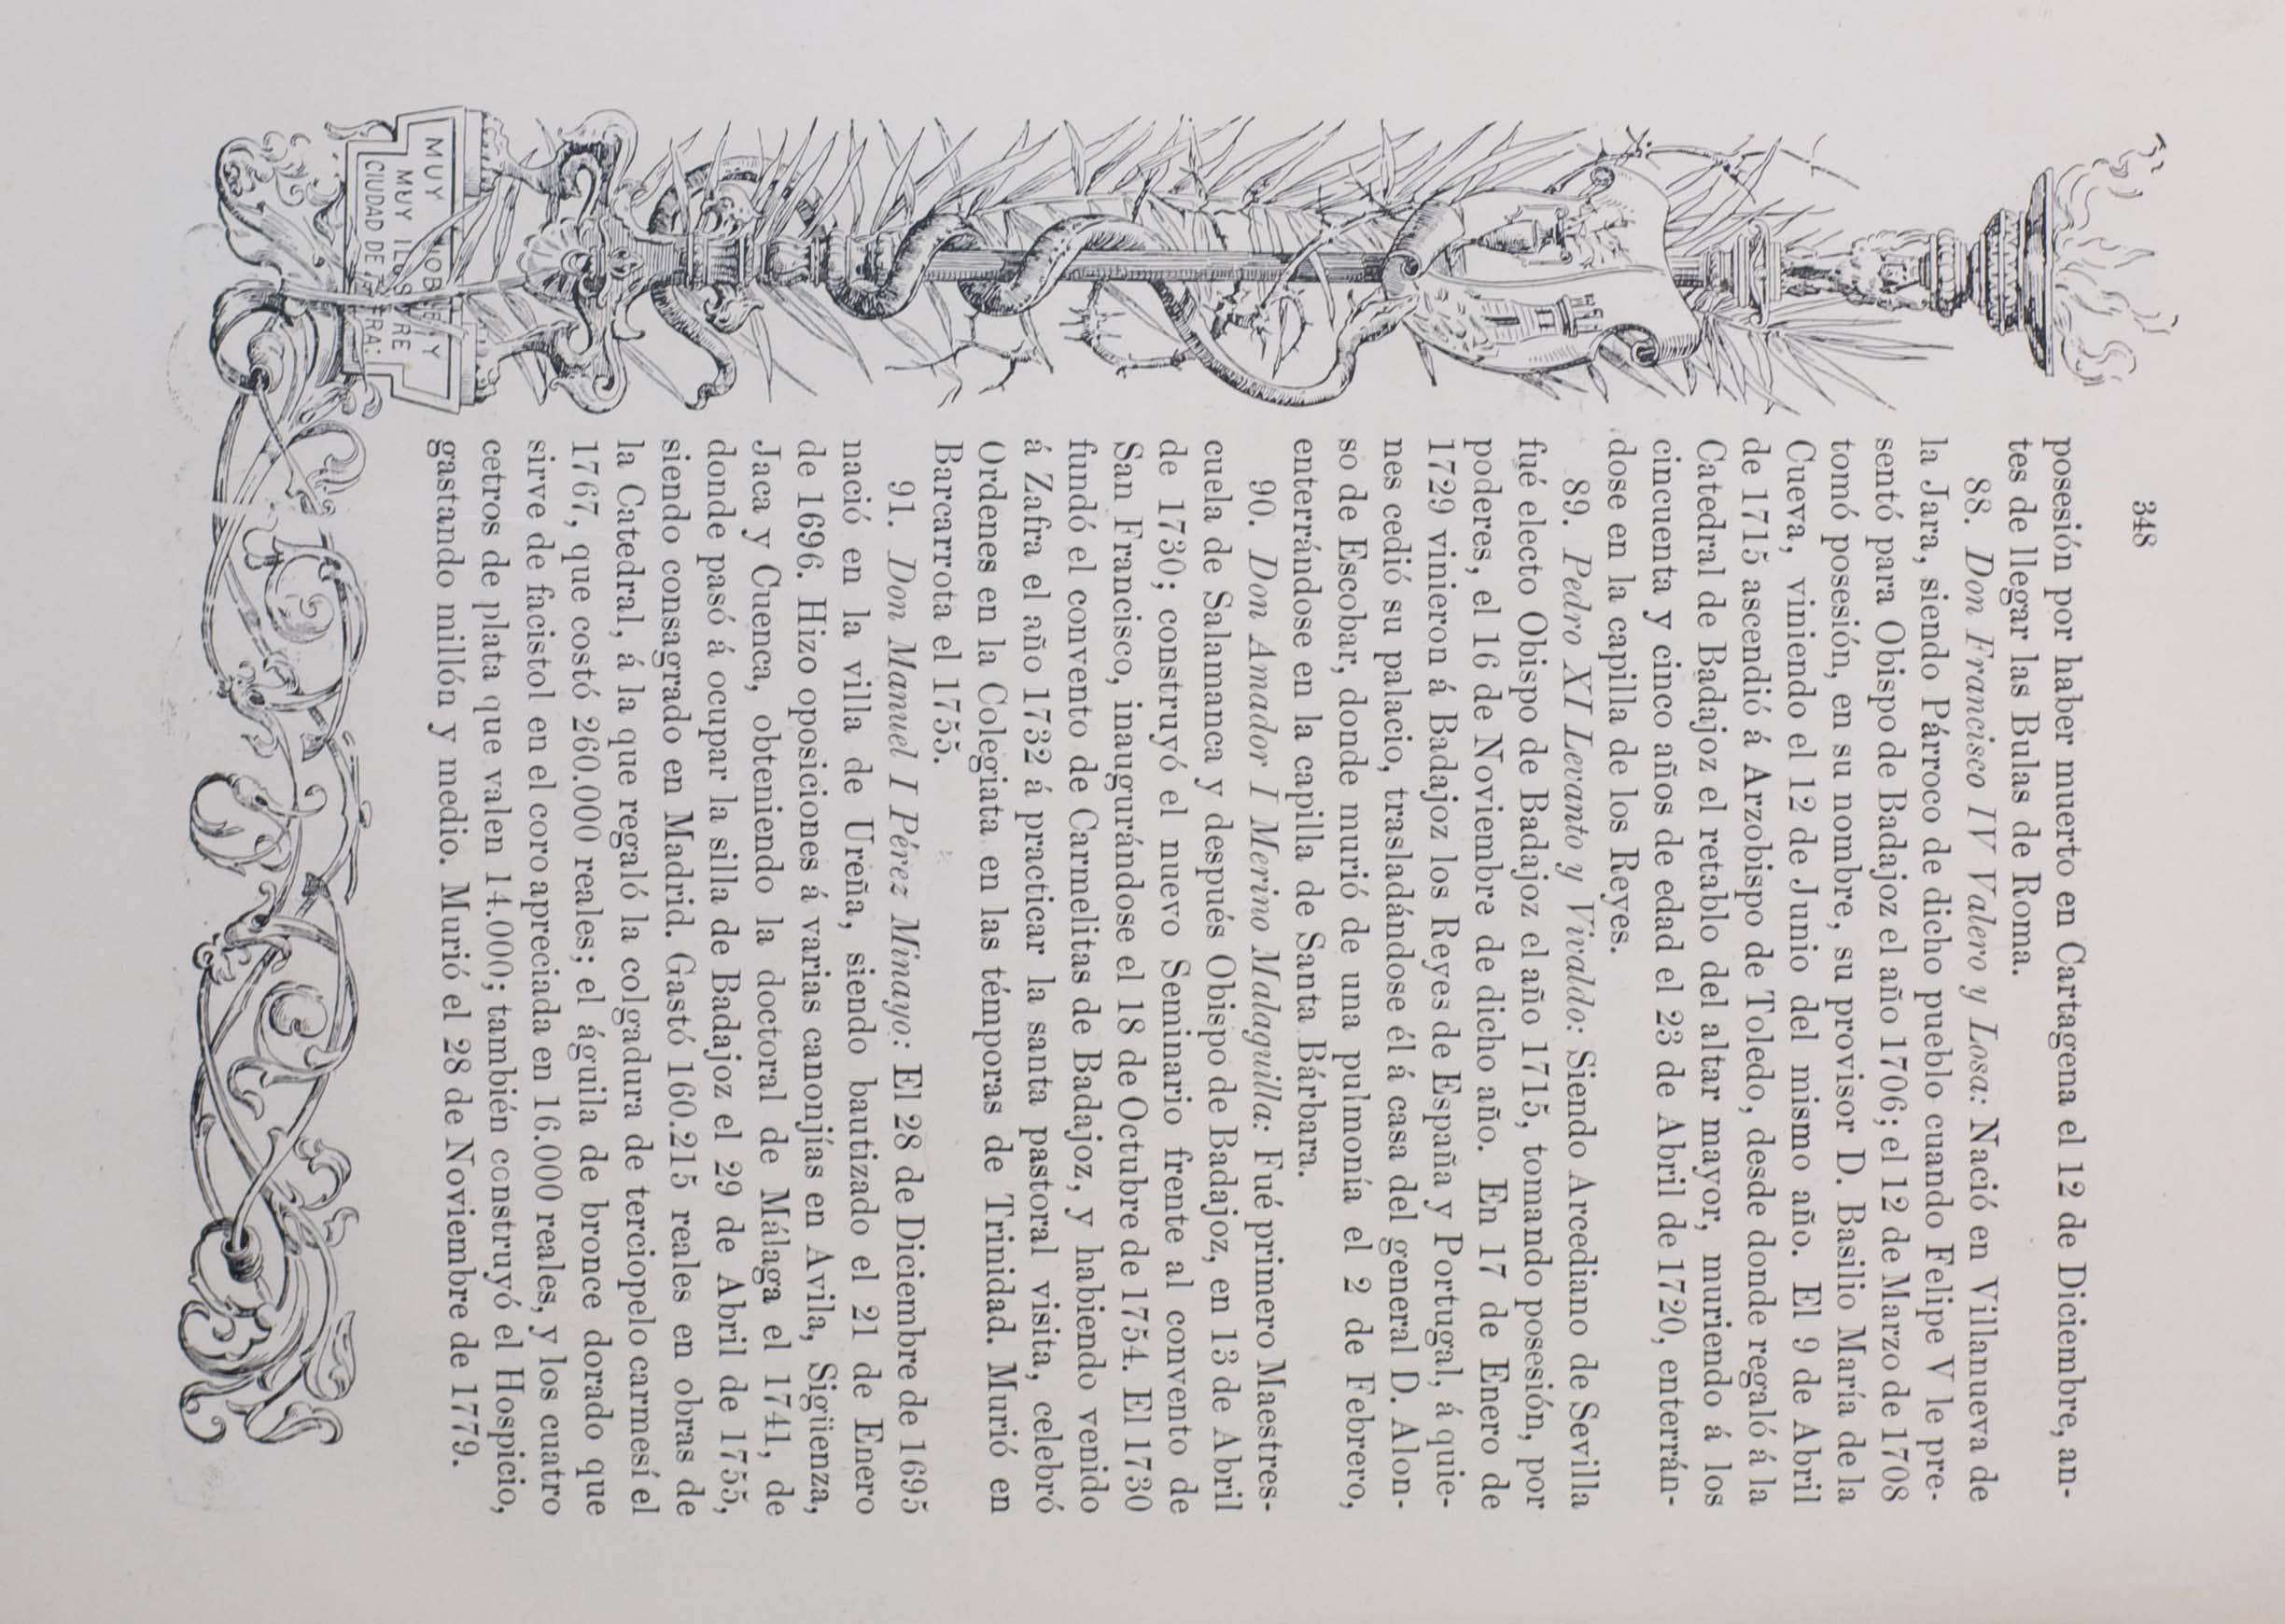 348
posesión por haber muerto en Cartagena el 12 de Diciembre, an-
tes de llegar las Bulas de Roma.
88. Don Francisco IV Valero y Losa: Nació en Villanueva de
la Jara, siendo Párroco de dicho pueblo cuando Felipe V le pre-
sentó para Obispo de Badajoz el año 1706; el 12 de Marzo de 1708
tomó posesión, en su nombre, su provisor D. Basilio María de la
Cueva, viniendo el 12 de Junio del mismo año. El 9 de Abril
de 1715 ascendió á Arzobispo de Toledo, desde donde regaló á la
Catedral de Badajoz el retablo del altar mayor, muriendo á los
cincuenta y cinco años de edad el 23 de Abril de 1720, enterrán-
dose en la capilla de los Reyes.
89. Pedro XI Levanto y Vivaldo: Siendo Arcediano de Sevilla
fué electo Obispo de Badajoz el año 1715, tomando posesión, por
poderes, el 16 de Noviembre de dicho año. En 17 de Enero de
1729 vinieron á Badajoz los Reyes de España y Portugal, á quie-
nes cedió su palacio, trasladándose él á casa del general D. Alon-
so de Escobar, donde murió de una pulmonía el 2 de Febrero,
enterrándose en la capilla de Santa Bárbara.
90. Don Amador I Merino Malaquilla: Fué primero Maestres-
cuela de Salamanca y después Obispo de Badajoz, en 13 de Abril
de 1730; construyó el nuevo Seminario frente al convento de
San Francisco, inaugurándose el 18 de Octubre de 1754. El 1730
fundó el convento de Carmelitas de Badajoz, y habiendo venido
á Zafra el año 1732 á practicar la santa pastoral visita, celebró
Ordenes en la Colegiata en las témporas de Trinidad. Murió en
Barcarrota el 1755.
91. Don Manuel I Pérez Minayo: El 28 de Diciembre de 1695
nació en la villa de Ureña, siendo bautizado el 21 de Enero
de 1696. Hizo oposiciones á varias canonjías en Avila, Sigüenza,
Jaca y Cuenca, obteniendo la doctoral de Málaga el 1741, de
donde pasó á ocupar la silla de Badajoz el 29 de Abril de 1755,
siendo consagrado en Madrid. Gastó 160.215 reales en obras de
la Catedral, á la que regaló la colgadura de terciopelo carmesí el
1767, que costó 260.000 reales; el águila de bronce dorado que
sirve de facistol en el coro apreciada en 16.000 reales, y los cuatro
cetros de plata que valen 14.000; también construyó el Hospicio,
gastando millón y medio. Murió el 28 de Noviembre de 1779.
MUY Y
MUY
CIUDAD DE